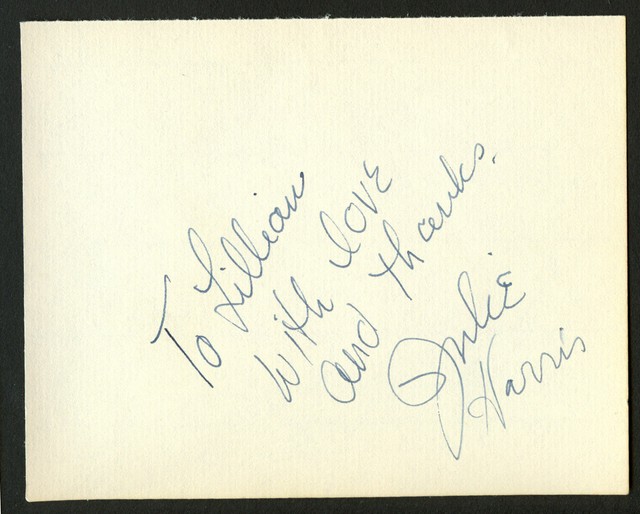 To Lillian
with love
and thanks.
Julie
Harris